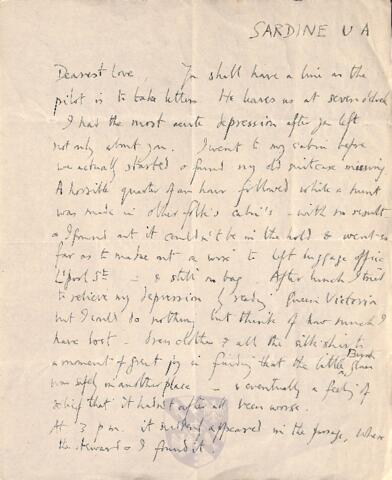 SARDINIA
Dearest Love, You shall have a line as the
pilot is to take letters. He leaves us at seven o'clock
I had the most acute depression after you left
not only about you. I went to my cabin before
we actually started & found my old suitcase missing
A horrible quarter of an hour followed while a hunt
was made in other folk's cabins - with no result
& I found out it couldn't be in the hold & went so
far as to make out a wire to left luggage office
L'pool St - & still no bag. After lunch I tried
to relieve my depression by reading Queen Victoria
but I could do nothing but think of how much I
have lost - dress clothes & all the silk shirts
a moment of great joy in finding that the little Burmh
was safely in another place - & eventually a feeling of
relief that it hadn't after all been worse.
At 3 p.m. it suddenly appeared in the passage, where
the steward & I found it